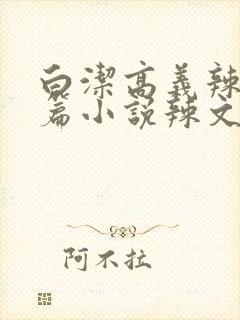 白潔高義辣
篇小説辣文
阿不拉